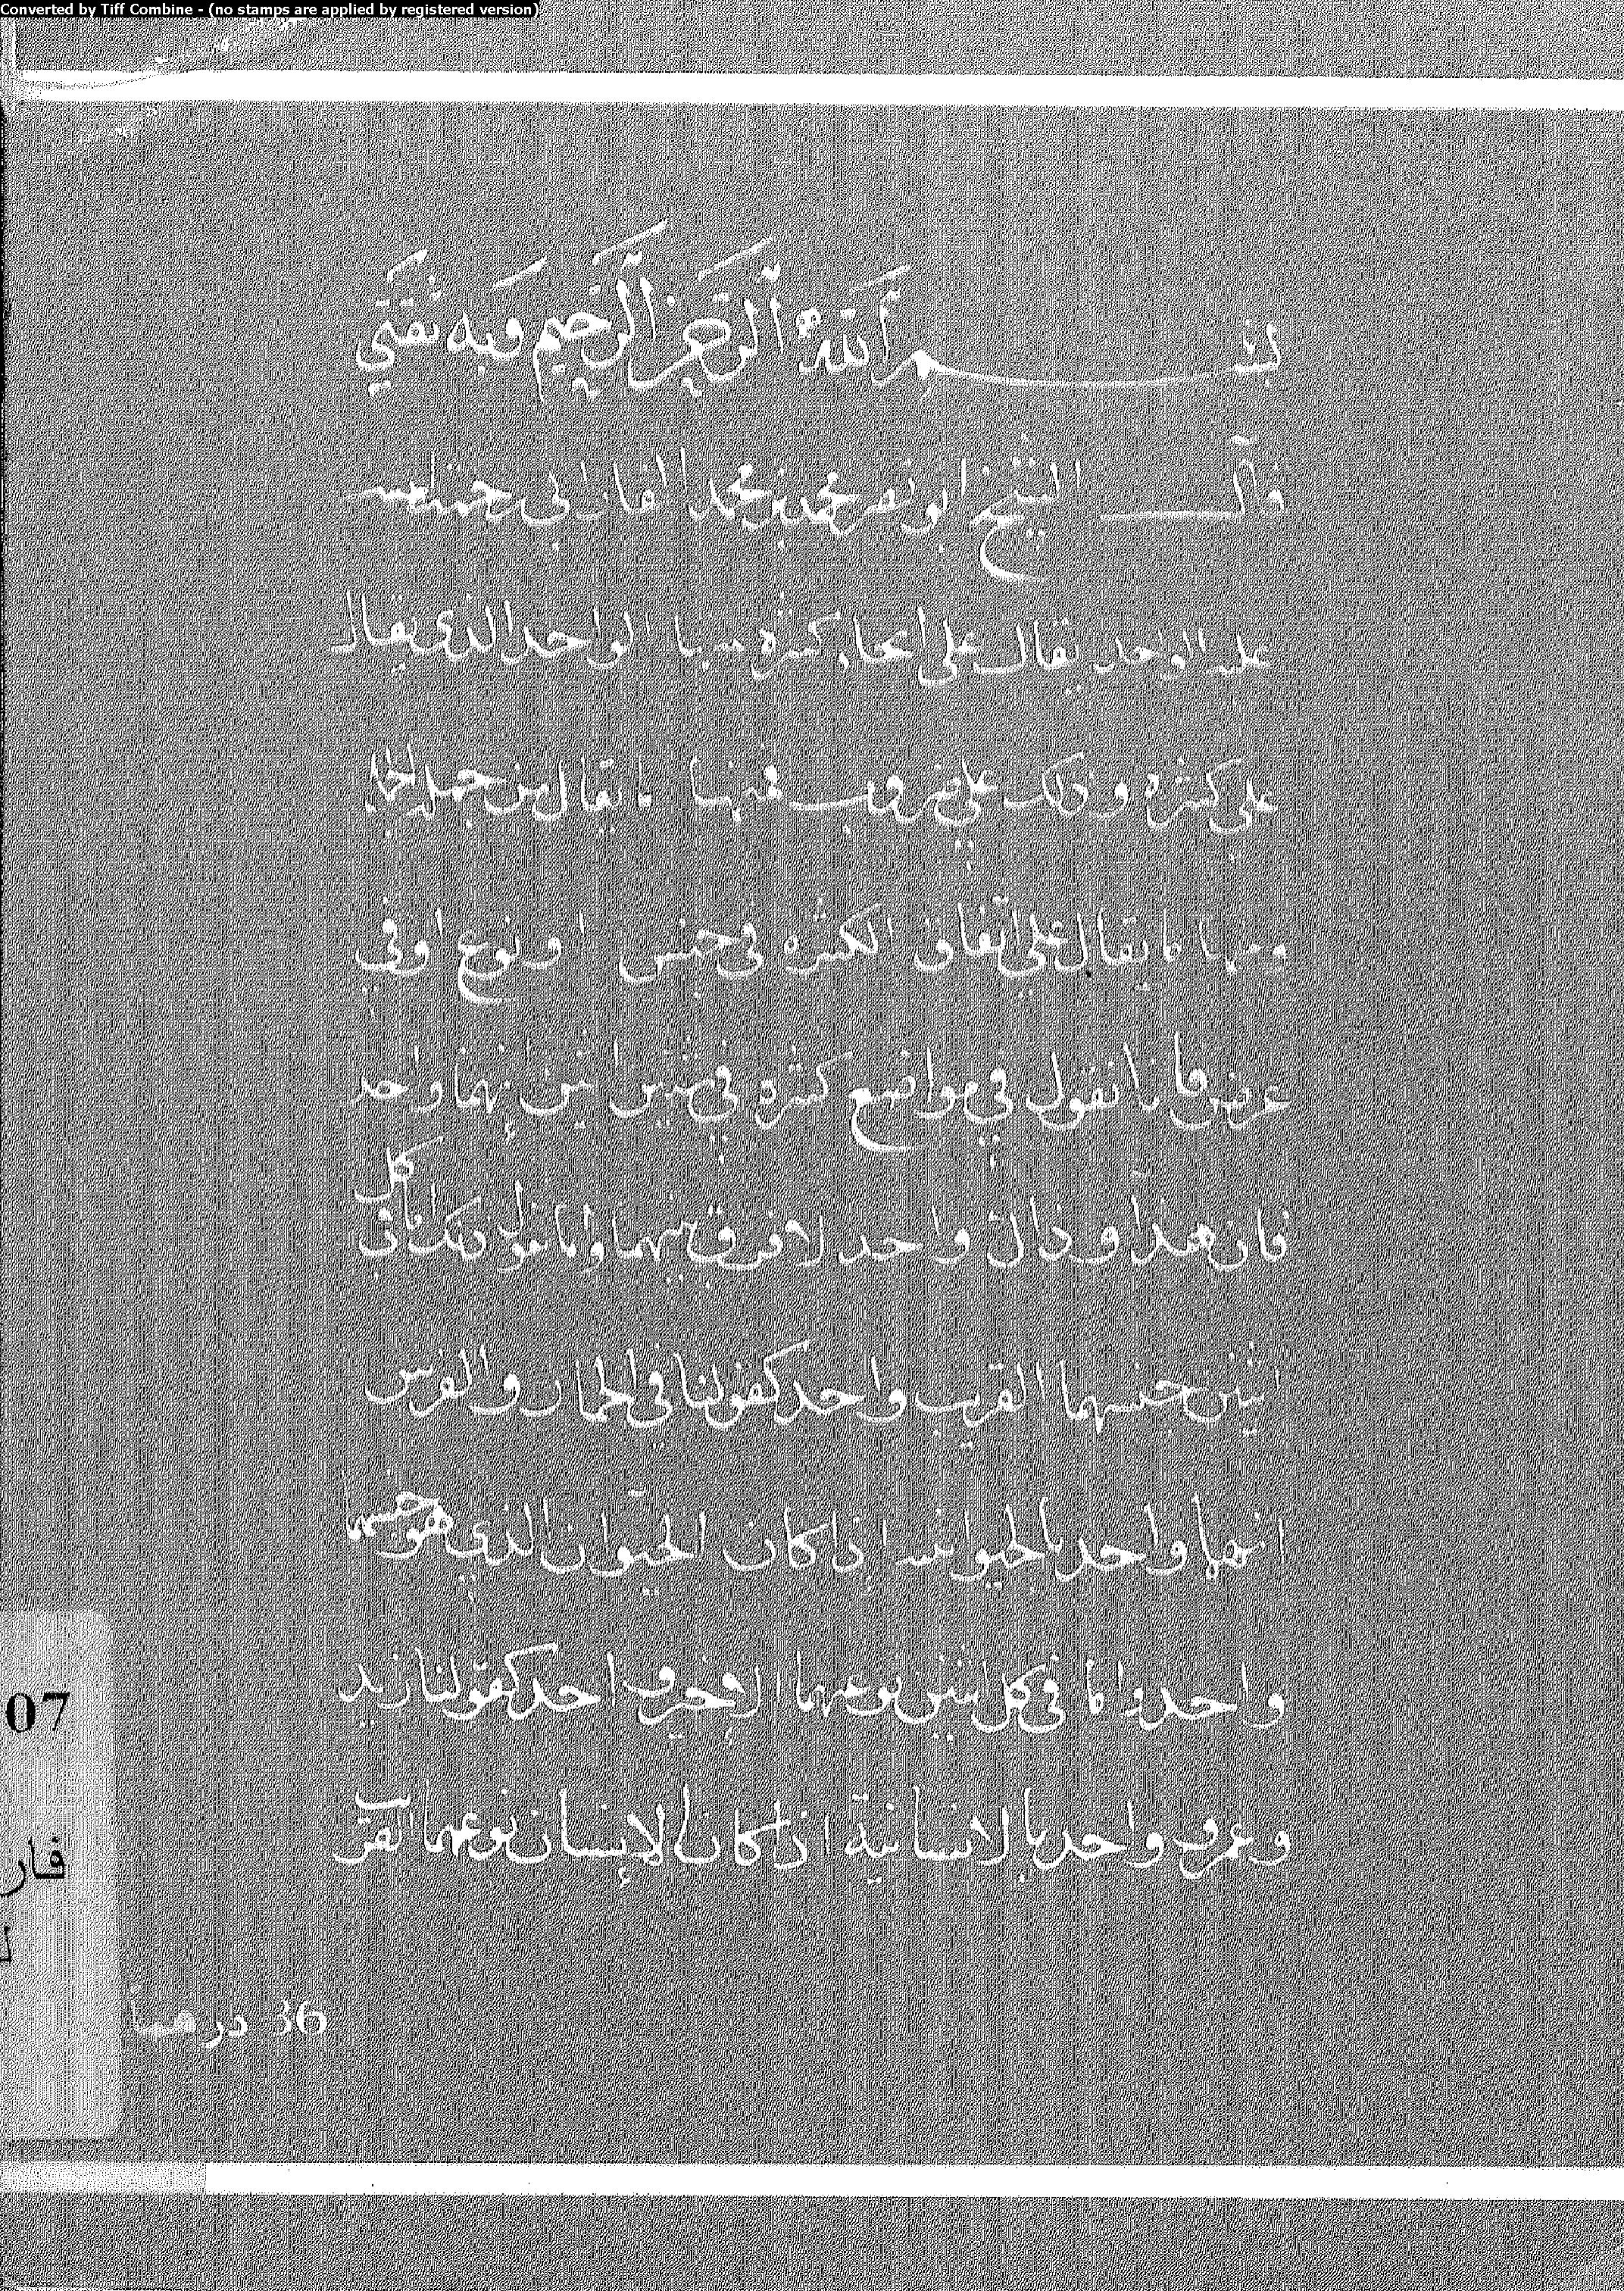 Converted by Tiff Combine - (no stamps are applied by registered version)
بسم الله الرحمن الرحيم وبه ثقتي
قال الشيخ ابو نصر محمد بن محمد الفارابي رحمة الله
عليه الواحد يقال على انحاء كثيرة منها الواحد الذي يقال
على كثيرة وذلك على ضروب فمنها ما يقال من
ومنها ما يقال على اتفاق الكثيرة في جنس او نوع او في
عرض فانا نقول في مواضع كثيرة في شيئين شيئين إنهما واحد
فان هذا وذاك واحد لا فرق بينهما وانما نقول ذلك اما في كل
اثنين جنسهما القريب واحد كقولنا في الحمار والفرس
انهما واحد بالحيوانية اذ كان الحيوان الذي هو جنسهما
واحد واما في كل اثنين نوعهما الاخير واحد كقولنا زيد
وعمرو واحد بالانسانية اذ كان الإنسان نوعهما القريب
07
فار
36 درهما